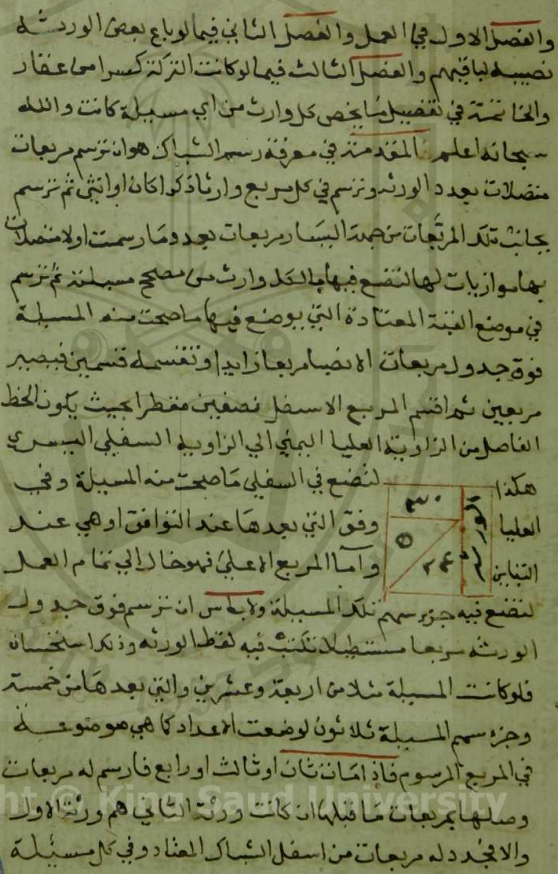 والفصل الاول في العمل والفصل الثاني فيما لو باع بعض الورثه
نصيبه لباقيهم والفصل الثالث فيما لو كانت التركة كسرا من عقار
والخاتمة في تفصيل ما يخص كل وارث من اي مسيلة كانت والله
سبحانه اعلم المقدمة في معرفة رسم الشباك هو ان ترسم مربعات
متصلات بعدد الورثه وترسم في كل مربع وارثا ذكرا كان او انثى ثم ترسم
بجانب تلك المربعات من جهة اليسار مربعات بعدد ما رسمت اولا متصلات
بها موازيات لها لتضع فيها ما لكل وارث من مصحح مسيلته ثم ترسم
في موضع القبة المعتادة التي يوضع فيها ما صحت منه المسيلة
فوق جدول مربعات الانصبا مربعا زايدا وتقسمه قسمين فيصير
مربعين ثم اقسم المربع الاسفل نصفين مقطرا بحيث يكون الخط
الفاصل من الزاوية العليا اليمنى الى الزاوية السفلى اليسرى
هكذا لتضع في السفلى ما صحت منه المسيلة وفي
العليا وفق التي بعدها عند التوافق او هي عند
التباين واما المربع الاعلى فهو خال الى تمام العمل
الورثه
٣٠
٥
٢٤
لتضع فيه جزء سهم تلك المسيلة ولا باس ان ترسم فوق جدول
الورثه مربعا مستطيلا تكتب فيه لفظ الورثه وذلك استحسان
فلو كانت المسيلة مثلا من اربعة وعشرين والتي بعدها من خمسة
وجزء سهم المسيلة ثلاثون لوضعت الاعداد كما هي موضوعة
في المربع المرسوم فاذا مات ثان او ثالث او رابع فارسم له مربعات
وصلها بمربعات ما قبلها ان كانت ورثة الثاني هم ورثة الاول
والا فجدد له مربعات من اسفل الشباك المعتاد وفي كل مسيلة
© King Saud University